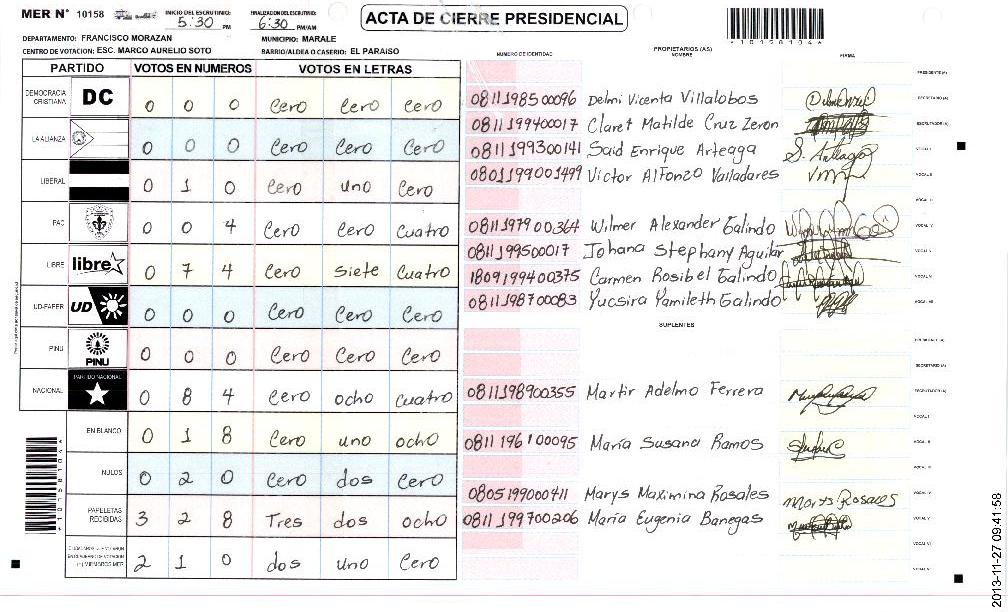 MER N° 10158
INICIO DEL ESCRUTINIO: 5:30 PM
FINALIZACION DEL ESCRUTINIO: 6:30 PM/AM
ACTA DE CIERRE PRESIDENCIAL
*10158104*
DEPARTAMENTO: FRANCISCO MORAZAN
MUNICIPIO: MARALE
CENTRO DE VOTACION: ESC. MARCO AURELIO SOTO
BARRIO/ALDEA O CASERIO: EL PARAISO
NUMERO DE IDENTIDAD
PROPIETARIOS (AS)
NOMBRE
FIRMA
PARTIDO VOTOS EN NUMEROS VOTOS EN LETRAS
DEMOCRACIA CRISTIANA DC 0 0 0 Cero Cero Cero
LA ALIANZA 0 0 0 Cero Cero Cero
LIBERAL 0 1 0 Cero uno Cero
PAC 0 0 4 Cero Cero Cuatro
LIBRE libre 0 7 4 Cero Siete Cuatro
UD-FAPER UD 0 0 0 Cero Cero Cero
PINU PINU 0 0 0 Cero Cero Cero
NACIONAL PARTIDO NACIONAL 0 8 4 Cero ocho Cuatro
EN BLANCO 0 1 8 Cero uno ocho
NULOS 0 2 0 Cero dos Cero
PAPELETAS RECIBIDAS 3 2 8 Tres dos ocho
2 1 0 dos uno Cero
PRESIDENTE (A)
0811198500096 Delmi Vicenta Villalobos SECRETARIO (A)
0811199400017 Claret Matilde Cruz Zeron ESCRUTADOR (A)
0811199300141 Said Enrique Arteaga VOCAL I
0801199001499 Victor Alfonzo Valladares VOCAL II
VOCAL III
0811197900364 Wilmer Alexander Galindo VOCAL IV
0811199500017 Johana Stephany Aguilar VOCAL V
1809199400375 Carmen Rosibel Galindo VOCAL VI
0811198700083 Yucsira Yamileth Galindo VOCAL VII
SUPLENTES
PRESIDENTE (A)
SECRETARIO (A)
0811198900355 Martir Adelmo Ferrera ESCRUTADOR (A)
VOCAL I
0811196100095 María Susana Ramos VOCAL II
VOCAL III
0805199000411 Marys Maximina Rosales Marys Rosales VOCAL IV
0811199700206 María Eugenia Banegas VOCAL V
VOCAL VI
VOCAL VII
*10158104*
2013-11-27 09:41:58